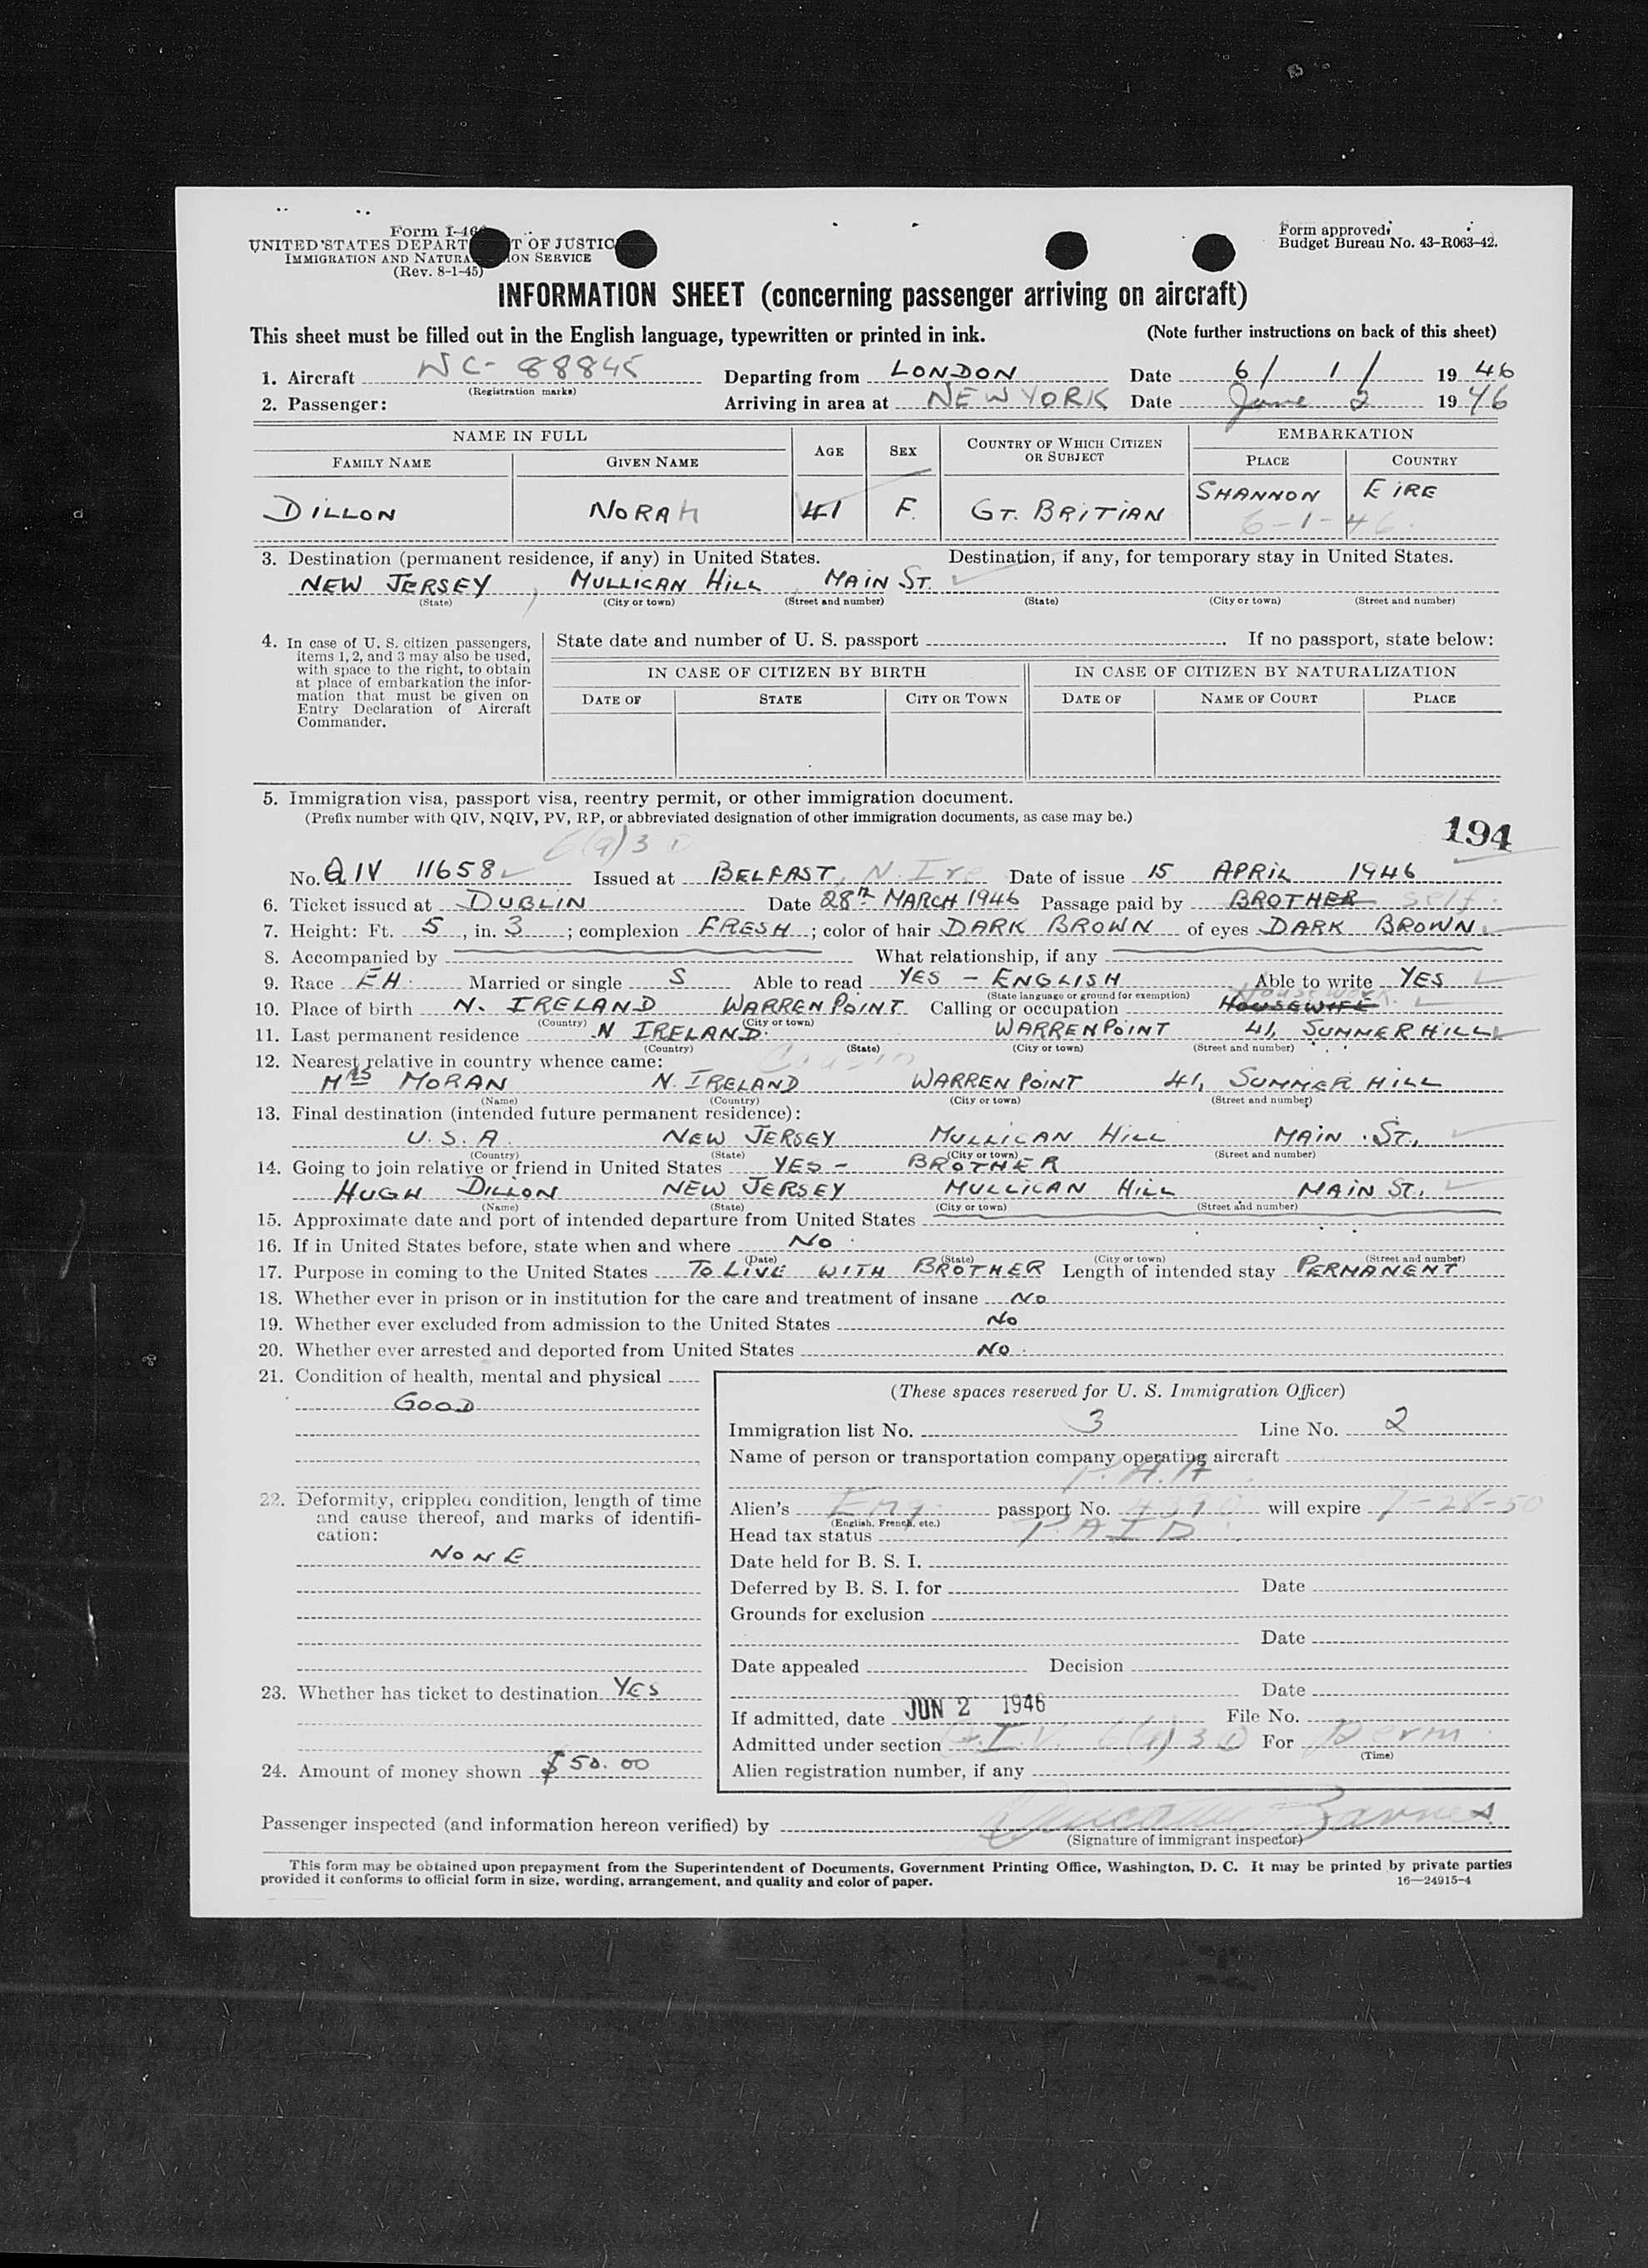 Form I-46
UNITED STATES DEPART T OF JUSTIC
IMMIGRATION AND NATURA ION SERVICE
(Rev. 8-1-45)
Form approved.
Budget Bureau No. 43-R063-42.
INFORMATION SHEET (concerning passenger arriving on aircraft)
This sheet must be filled out in the English language, typewritten or printed in ink. (Note further instructions on back of this sheet)
1. Aircraft NC-88845 Departing from LONDON Date 6/ 1/ 1946
(Registration marks)
2. Passenger: Arriving in area at NEW YORK Date June 2 1946
NAME IN FULL AGE SEX COUNTRY OF WHICH CITIZEN OR SUBJECT EMBARKATION
FAMILY NAME GIVEN NAME PLACE COUNTRY
DILLON NORAH 41 F. GT. BRITIAN SHANNON EIRE
6-1-46.
3. Destination (permanent residence, if any) in United States. Destination, if any, for temporary stay in United States.
NEW JERSEY, MULLICAN HILL MAIN ST.
(State) (City or town) (Street and number) (State) (City or town) (Street and number)
4. In case of U. S. citizen passengers, items 1, 2, and 3 may also be used, with space to the right, to obtain at place of embarkation the information that must be given on Entry Declaration of Aircraft Commander.
State date and number of U. S. passport If no passport, state below:
IN CASE OF CITIZEN BY BIRTH IN CASE OF CITIZEN BY NATURALIZATION
DATE OF STATE CITY OR TOWN DATE OF NAME OF COURT PLACE
5. Immigration visa, passport visa, reentry permit, or other immigration document.
(Prefix number with QIV, NQIV, PV, RP, or abbreviated designation of other immigration documents, as case may be.)
194
6(a)3
No. QIV 11658 Issued at BELFAST, N. Ire Date of issue 15 APRIL 1946
6. Ticket issued at DUBLIN Date 28th MARCH 1946 Passage paid by BROTHER self.
7. Height: Ft. 5, in. 3; complexion FRESH; color of hair DARK BROWN of eyes DARK BROWN
8. Accompanied by What relationship, if any
9. Race EH. Married or single S Able to read YES - ENGLISH Able to write YES
(State language or ground for exemption)
10. Place of birth N. IRELAND WARRENPOINT Calling or occupation HOUSEWIFE Housework.
(Country) (City or town)
11. Last permanent residence N IRELAND. WARRENPOINT 41, SUMMERHILL
(Country) (State) (City or town) (Street and number)
12. Nearest relative in country whence came: Cousin
MRS MORAN N. IRELAND WARREN POINT 41, SUMMER HILL
(Name) (Country) (City or town) (Street and number)
13. Final destination (intended future permanent residence):
U. S. A. NEW JERSEY MULLICAN HILL MAIN ST.
(Country) (State) (City or town) (Street and number)
14. Going to join relative or friend in United States YES - BROTHER
HUGH DILLON NEW JERSEY MULLICAN HILL MAIN ST.
(Name) (State) (City or town) (Street and number)
15. Approximate date and port of intended departure from United States
16. If in United States before, state when and where NO
(Date) (State) (City or town) (Street and number)
17. Purpose in coming to the United States TO LIVE WITH BROTHER Length of intended stay PERMANENT
18. Whether ever in prison or in institution for the care and treatment of insane NO
19. Whether ever excluded from admission to the United States NO
20. Whether ever arrested and deported from United States NO.
21. Condition of health, mental and physical
GOOD
22. Deformity, crippled condition, length of time and cause thereof, and marks of identification:
NONE
23. Whether has ticket to destination YES
24. Amount of money shown $50.00
(These spaces reserved for U. S. Immigration Officer)
Immigration list No. 3 Line No. 2
Name of person or transportation company operating aircraft
P.A.A.
Alien's Eng. passport No. will expire 7-28-50
(English, French, etc.)
Head tax status PAID
Date held for B. S. I.
Deferred by B. S. I. for Date
Grounds for exclusion
Date
Date appealed Decision
Date
If admitted, date JUN 2 1946 File No.
Admitted under section Q.I.V. 6(a)3 For Perm.
(Time)
Alien registration number, if any
Passenger inspected (and information hereon verified) by Barnes
(Signature of immigrant inspector)
This form may be obtained upon prepayment from the Superintendent of Documents, Government Printing Office, Washington, D. C. It may be printed by private parties
provided it conforms to official form in size, wording, arrangement, and quality and color of paper. 16—24915-4